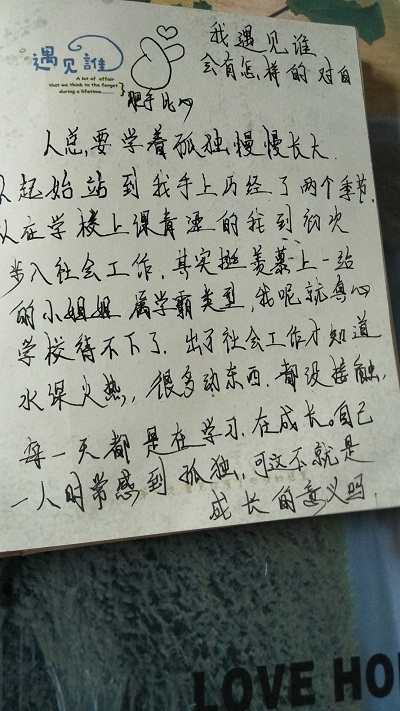 遇见誰
A lot of affair
that we think to the forget
during a lifetime......
我遇见谁
会有怎样的对白
肥手比心
人总要学着孤独慢慢长大
从起始站到我手上历经了两个季节,
从在学校上课青涩的我到初次
步入社会工作,其实挺羡慕上一站
的小姐姐 属学霸类型,我呢就真心
学校待不下了.出了社会工作才知道
水深火热,很多动东西都没接触,
每一天都是在学习,在成长。自己
一人时常感到孤独,可这不就是
成长的意义吗.
LOVE HO